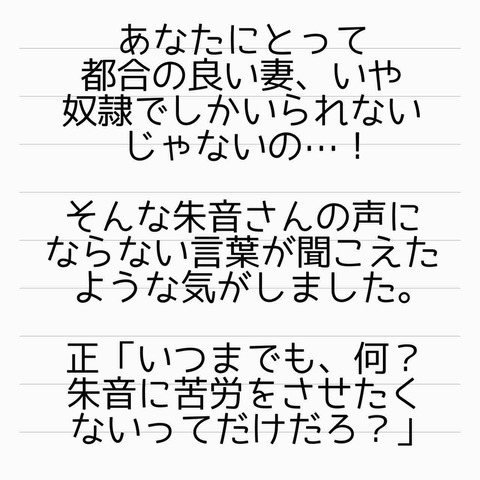 あなたにとって
都合の良い妻、いや
奴隷でしかいられない
じゃないの…！
そんな朱音さんの声に
ならない言葉が聞こえた
ような気がしました。
正「いつまでも、何？
朱音に苦労をさせたく
ないってだけだろ？」